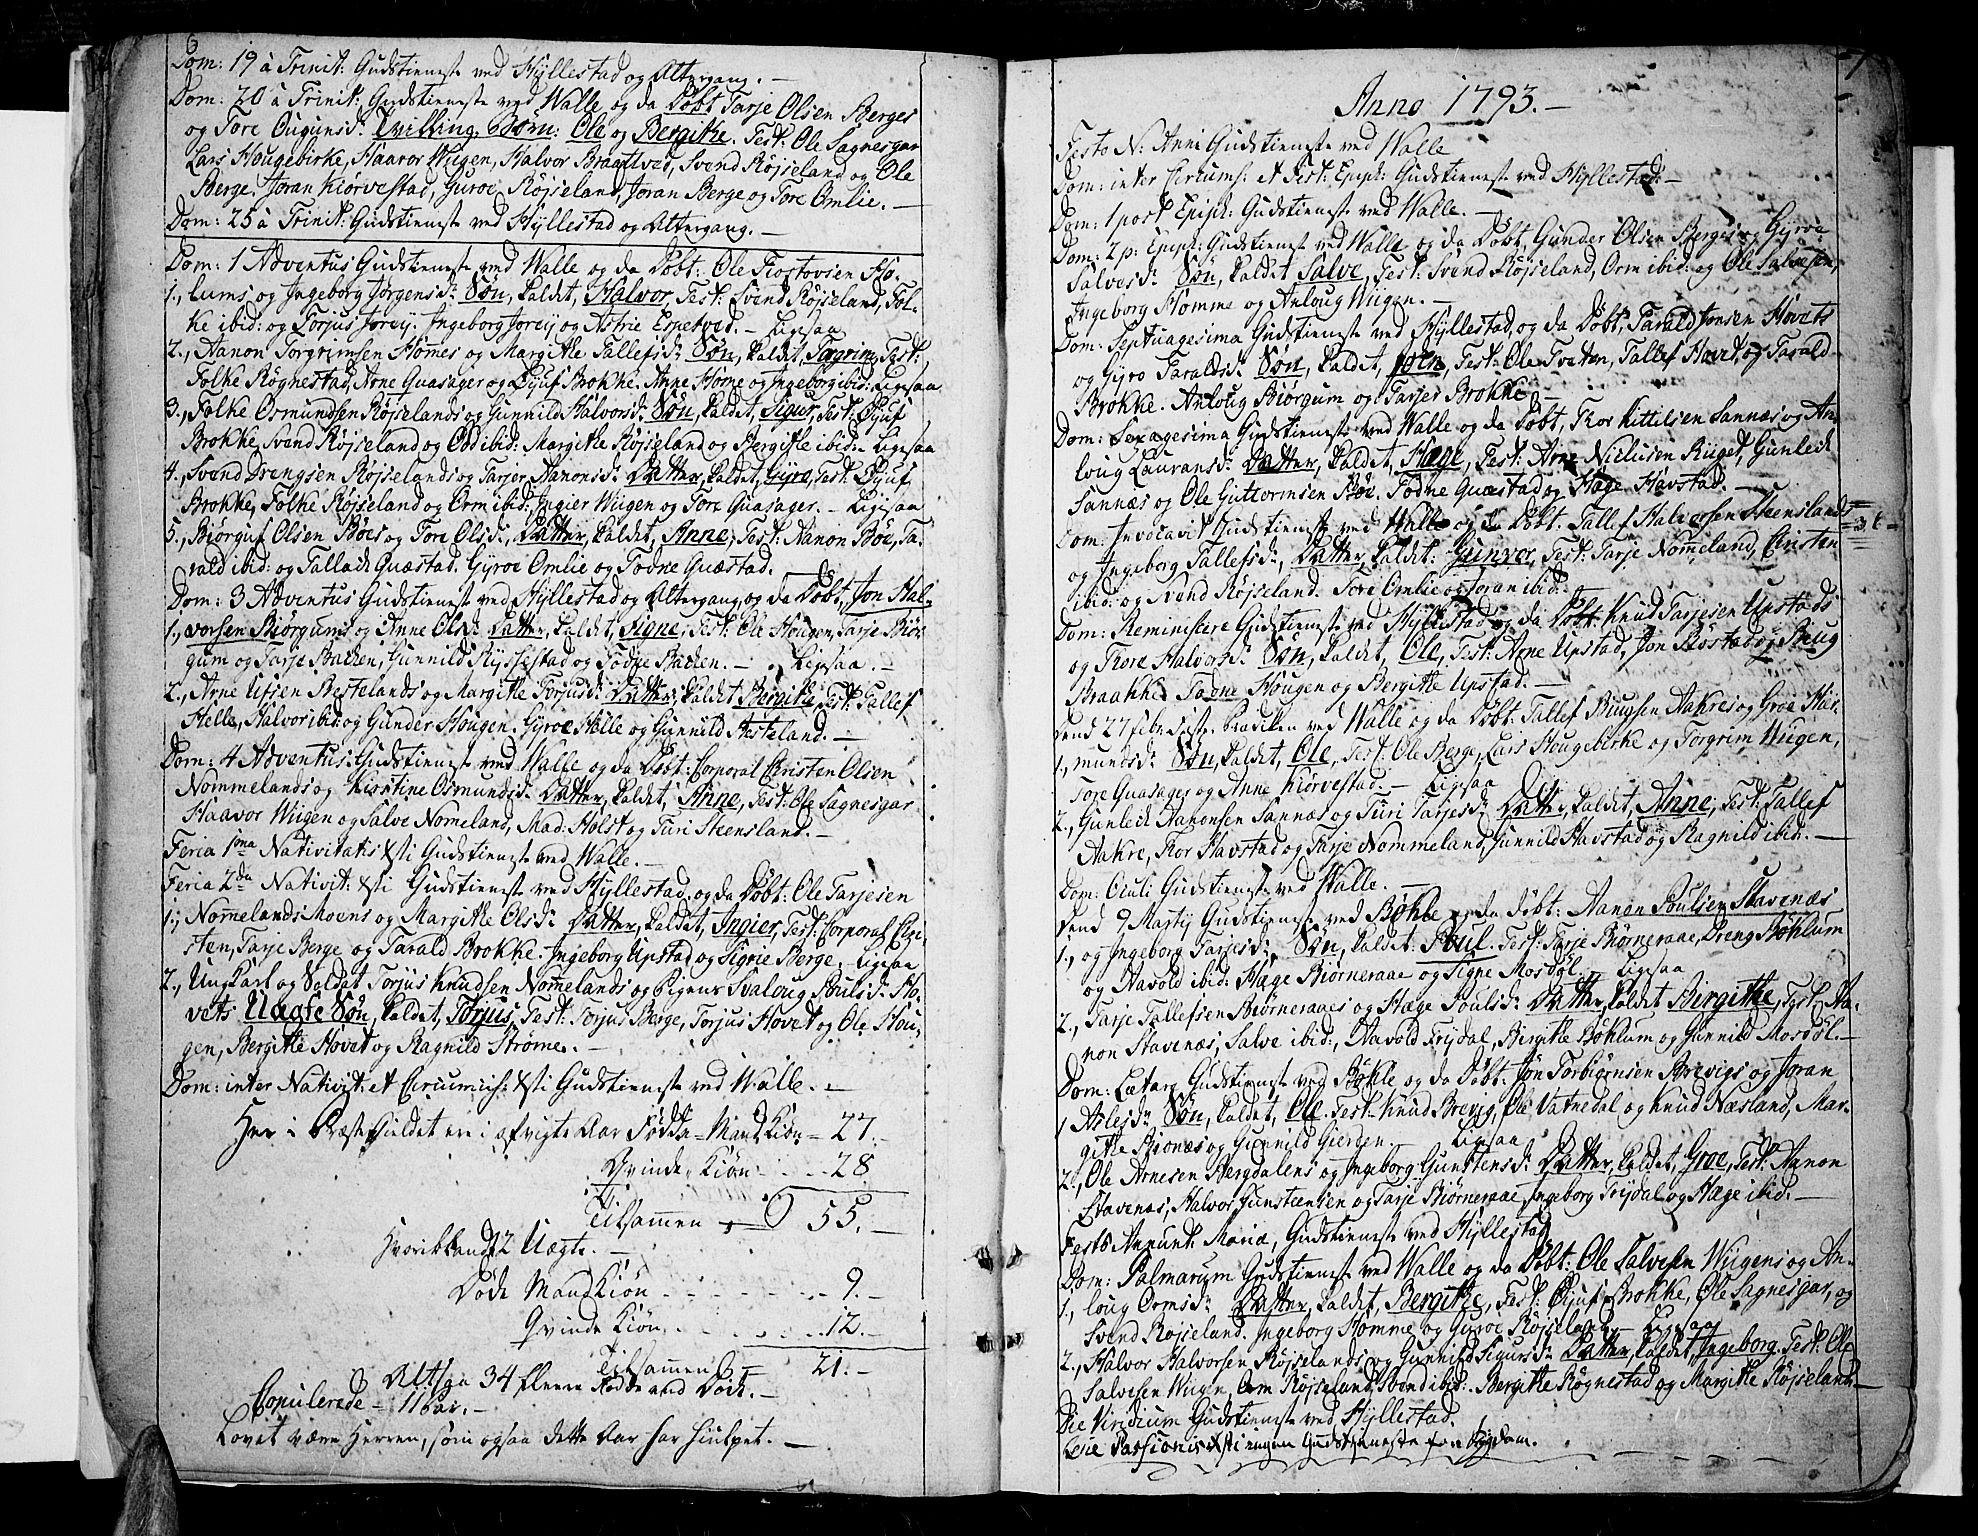 6
Dom: 19 à Trinit: Gudstieneste ved Hyllestad og Altergang. —
Dom: 20 à Trinit: Gudstieneste ved Walle og da Döbt Tarje Olsen Berges
og Tore Ougunsd: Tvilling Börn: Ole og Bergitke. Test: Ole Sagnesgar
Lars Hougebirke, Haavor Wiigen, Halvor Braatved, Svend Röjseland og Ole
Berge, Joran Kiörvestad, Guroe Röjseland, Joran Berge og Tore Omlie. —
Dom: 25 à Trinit: Gudstieneste ved Hyllestad og Altergang. —
Dom: 1 Adventus Gudstieneste ved Walle og da Döbt: Ole Tiostovsen Ho-
1., lums og Ingeborg Jörgensd: Sön, kaldet, Halvor, Test: Svend Röjseland, Fol-
ke ibid: og Torjus Jorey. Ingeborg Jorey og Astrie Espetved. — Ligesaa
2., Aanon Torgrimsen Homes og Margitke Tallefsd: Sön, kaldet, Torgrim, Test:
Folke Rögnestad, Arne Quasager og Eyuf Brokke. Anne Home og Ingeborg ibid: Ligesaa
3., Folke Osmundsen Röjselands og Gunnild Halvorsd: Sön, kaldet, Sigur, Test: Eyuf
Brokke, Svend Röjseland og Odd ibid: Margitke Röjseland og Bergitke ibid: Ligesaa
4., Svend Drengsen Röjselands og Tarjer Aanonsd: Datter, kaldet, Gyro, Test: Eyuf
Brokke, Folke Röjseland og Orm ibid: Ingier Wiigen og Tore Quasager. — Ligesaa
5., Biörguf Olsen Böes og Tore Olsd:, Datter, kaldet, Anne, Test: Aanon Böe, Ta-
rald ibid: og Tallack Quæstad. Gyroe Omlie og Todne Quæstad. —
Dom: 3 Adventus Gudstieneste ved Hyllestad og Altergang, og da Döbt, Jon Hal-
1., vorsen Biörgums og Anne Olsd: Datter, kaldet, Signe, Test: Ole Hougen, Tarje Biör-
gum og Tarje Backen, Gunnild Ryssestad og Todne Backen. — Ligesaa. —
2., Arne Ufsen Hestelands og Margitke Torjusd: Datter, kaldet Bergitke, Test: Tallef
Helle, Halvor ibid: og Gunder Hougen. Gyroe Helle og Gunnild Hesteland. —
Dom: 4 Adventus: Gudstieneste ved Walle og da Döbt: Corporal Christen Olsen
Nommelands og Kiöstine Osmundsd: Datter, kaldet, Anne, Test: Ole Sagnesgar
Haavor Wiigen og Salve Nomeland, Mad: Holst og Turi Steensland. —
Feria 1ma Nativitatis Xsti Gudstieneste ved Walle. —
Feria 2da Nativit: Xsti Gudstieneste ved Hyllestad, og da Döbt: Ole Tarjesen
1., Nomelands Moens og Margitke Olsd: Datter, kaldet, Ingier, Test: Corporal Chri-
sten, Tarje Berge og Tarald Brokke. Ingeborg Upstad og Sigrie Berge. Ligesaa
2., Ungkarl og Soldat Torjus Knudsen Nomelands og Pigens Svaloug Poulsd: Ho-
vets Uægte Sön, kaldet, Torjus, Test: Torjus Berge, Torjus Hovet og Ole Hou-
gen, Bergitke Hovet og Ragnild Ströme. —
Dom: inter Nativit: et Circumcis: Xsti Gudstieneste ved Walle. —
Her i Præstegieldet ere i afvigte Aar Fødde = Mandkiön = 27. —
Qvinde-Kiön . . . . 28
Tilsammen . . 55. —
Hvoriblandt 2 Uægte. —
Döde Mandkiön . . . . . . . 9. —
Qvinde Kiön . . . . . . 12. —
Tilsammen = 21. —
Altsaa 34 fleere Fødde end Döde. —
Copulerede = 11 Par. —
Lovet være Herren, som ogsaa dette Aar har hiulpet. —
7
Anno 1793. —
Festo N: Anni Gudstieneste ved Walle
Dom: inter Circums: et Fest: Epiph: Gudstieneste ved Hyllestad. —
Dom: 1 post Epiph: Gudstieneste ved Walle. —
Dom: 2 p: Epiph: Gudstieneste ved Walle og da Döbt, Gunder Olsen Berges og Gyroe
Salvesd: Sön, kaldet Salve, Test: Svend Röjseland, Orm ibid: og Ole Salvesen,
Ingeborg Homme og Anloug Wiigen. —
Dom: Septuagesima Gudstieneste ved Hyllestad, og da Döbt, Tarald Jonsen Hovets
og Gyro Taraldsd: Sön, kaldet, Joen, Test: Ole Tveten, Tallef Hovet og Tarald
Brokke. Anloug Biörgum og Tarjer Brokke. —
Dom: Sexagesima Gudstieneste ved Walle og da Döbt, Thor Kittilsen Sannæs og An-
loug Lauransd: Datter, kaldet, Hæge, Test: Arne Nielusen Riiget, Gunleik
Sannæs og Ole Guttormsen Böe. Todne Quæstad og Hæge Havstad. —
Dom: Invocavit Gudstieneste ved Walle og da Döbt. Tallef Halvorsen Steenslands
og Ingeborg Tallefsd:, Datter, kaldet: Gunvor, Test: Tarje Nomeland, Christen
ibid: og Svend Röjseland. Tore Omlie og Joran ibid: —
Dom: Reminiscere Gudstieneste ved Hyllestad og da Döbt Knud Tarjesen Upstads
og Thore Halvorsd: Sön, kaldet, Ole, Test: Arne Upstad, Jon Röstad og Biug
Braakke. Todne Hougen og Bergitke Upstad. —
Dend 27 febr: Siste Prædiken ved Walle og da Döbt: Tallef Biugsen Aakres og Groe Hær-
1., munds: Sön, kaldet, Ole, Test: Ole Berge, Lars Hougebirke og Torgrim Wiigen,
Tore Quasager og Anne Kiörvestad. — Ligesaa
2., Gunleik Aanonsen Sannæs og Turi Tarjesd: Datter, kaldet, Anne, Test: Tallef
Aakre, Thor Havstad og Tarje Nommeland, Gunnild Havstad og Ragnild ibid: —
Dom: Oculi Gudstieneste ved Walle. —
Dend 9 Martij Gudstieneste ved Bökle og da döbt: Aanon Poulsen Stavenæs
1., og Ingeborg Tarjesd: Sön, kaldet: Poul. Test: Tarje Biörneraae, Dreng Böklum
og Aavold ibid: Hæge Biörneraae og Signe Mosdöl. Ligesaa
2., Tarje Tallefsen Biörneraaes og Hæge Poulsd: Datter, kaldet Birgitke, Test: Aa-
non Stavenæs, Salve ibid:, Aavold Trijdal, Birgitke Böklum og Gunnild Mosdöl. —
Dom: Lætare Gudstieneste ved Bökle og da Döbt: Jon Torbiörnsen Brevigs og Joran
1 Aslesd: Sön, kaldet, Ole. Test: Knud Brevig, Ole Vatnedal og Knud Næsland, Mar-
gitke Biönæs og Gunnild Gierden. — Ligesaa
2., Ole Arnesen Bergdalens og Ingeborg Gunstensd: Datter, kaldet, Groe, Test: Aanon
Stavenæs, Halvor Gunsteensen og Tarje Biörneraae, Ingeborg Trijdal og Hæge ibid: —
Festo Annunt: Mariæ, Gudstieneste ved Hyllestad
Dom: Palmarum Gudstieneste ved Walle og da Döbt: Ole Salvesen Wiigens og An-
1., loug Ormsd: Datter, kaldet, Bergitke, Test: Eyuf Brokke, Ole Sagnesgar, og
Svend Röjseland. Ingeborg Homme og Guroe Röjseland. — Ligesaa
2., Halvor Halvorsen Röjselands og Gunnild Sigursd: Datter, kaldet, Ingeborg. Test: Ole
Salvesen Wiigen, Orm Röjseland, Svend ibid: Bergitke Rögnestad og Margitke Röjseland. —
Die Viridium Gudstieneste ved Hyllestad.
Die Passionis Xsti ingen Gudstieneste for Sygdom.